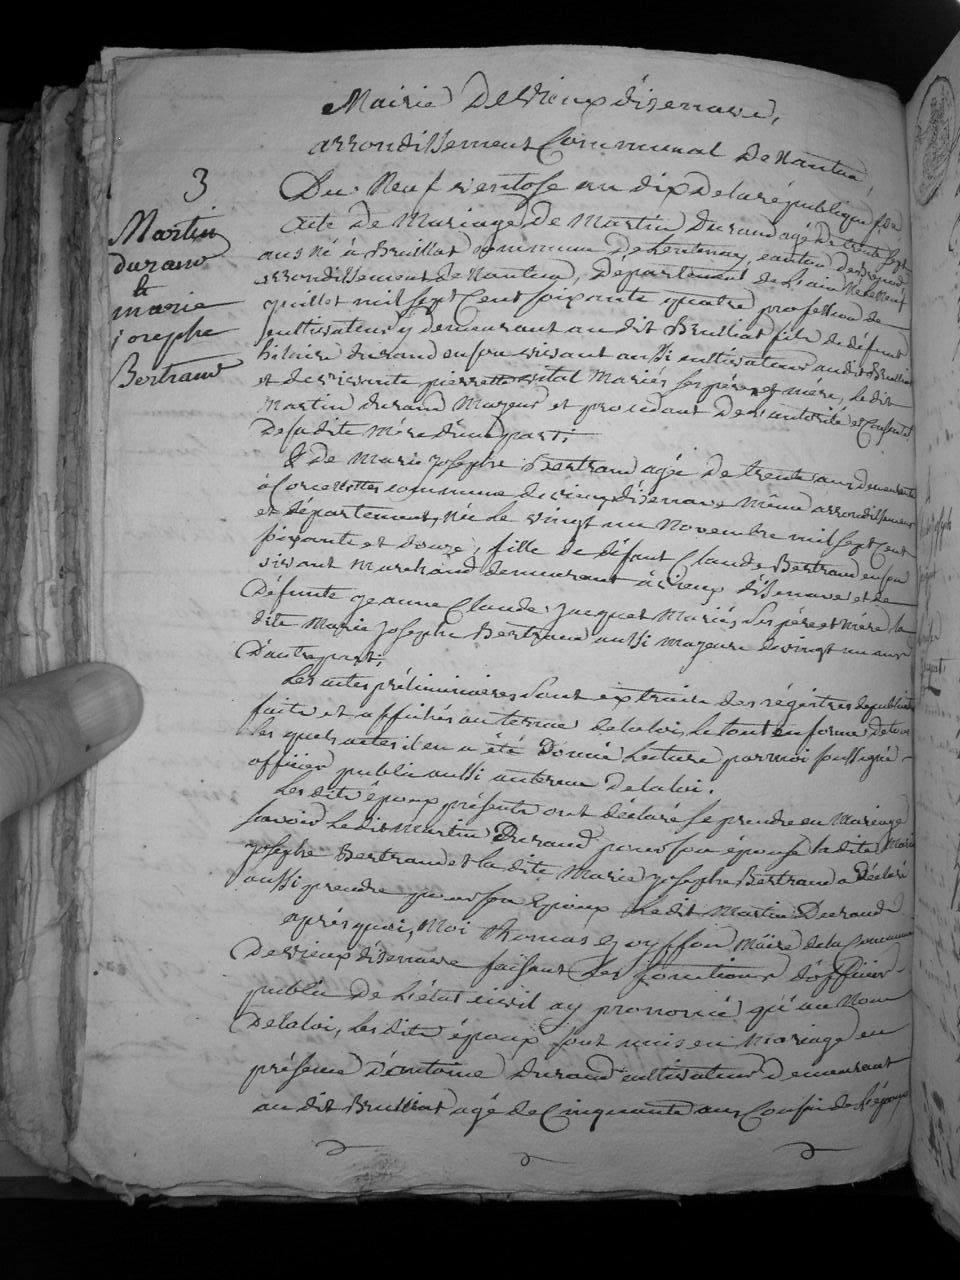 Mairie De Vieux d'izenave,
arrondissement Communal de Nantua,
3
Martin
durand
&
marie
josephe
Bertrand
Du Neuf ventose an dix De la république fse
Acte De Mariage De Martin Durand agé De trente sept
ans Né à Brulliat commune De Lentenay, canton De Brenod
arrondissement De Nantua, Département de L'ain Né le Neuf
juillet mil sept Cent soixante quatre profession de
cultivateur y demeurant au dit Brulliat fils de défunt
hilaire durand en son vivant aussi cultivateur au dit Brulliat
et de vivante pierrette vital Mariés ses père et mère, le dit
Martin durand Majeur et procédant De l'autorité et Consent.
De sa dite Mère d'une part;
& De Marie Josephe Bertrand agée De trente ans demeurante
à Corcelettes commune de vieux d'izenave même arrondissement
et département, Née le vingt un Novembre mil sept Cent
soixante et douze, fille de défunt Claude Bertrand en son
vivant Marchand demeurant à Vieux d'izenave et de
Défunte jeanne Claude Jacquet Mariés ses père et mère la
dite Marie Josephe Bertrand aussi majeure de vingt un ans
D'autre part;
Les actes préliminaires sont extraits des régistres de publicat.
faits et affichés au terme de la loi, le tout en forme
les quels actes il en a été Donné Lecture par moi soussigné
officier public aussi au terme de la loi.
Les dits époux présents ont déclaré se prendre en Mariage
savoir Le dit Martin Durand pour son épouse la dite Marie
josephe Bertrand et la dite Marie josephe Bertrand a Déclaré
aussi prendre pour son Epoux Le dit Martin Durand
après quoi, Moi thomas Maire de la Commune
De vieux d'izenave faisant les fonctions d'officier
public De L'état civil ay prononcé qu'au Nom
De la loi, Les dits époux sont unis en Mariage en
présence d'antoine Durand cultivateur Demeurant
au dit Brulliat agé de Cinquante ans Cousin de L'époux